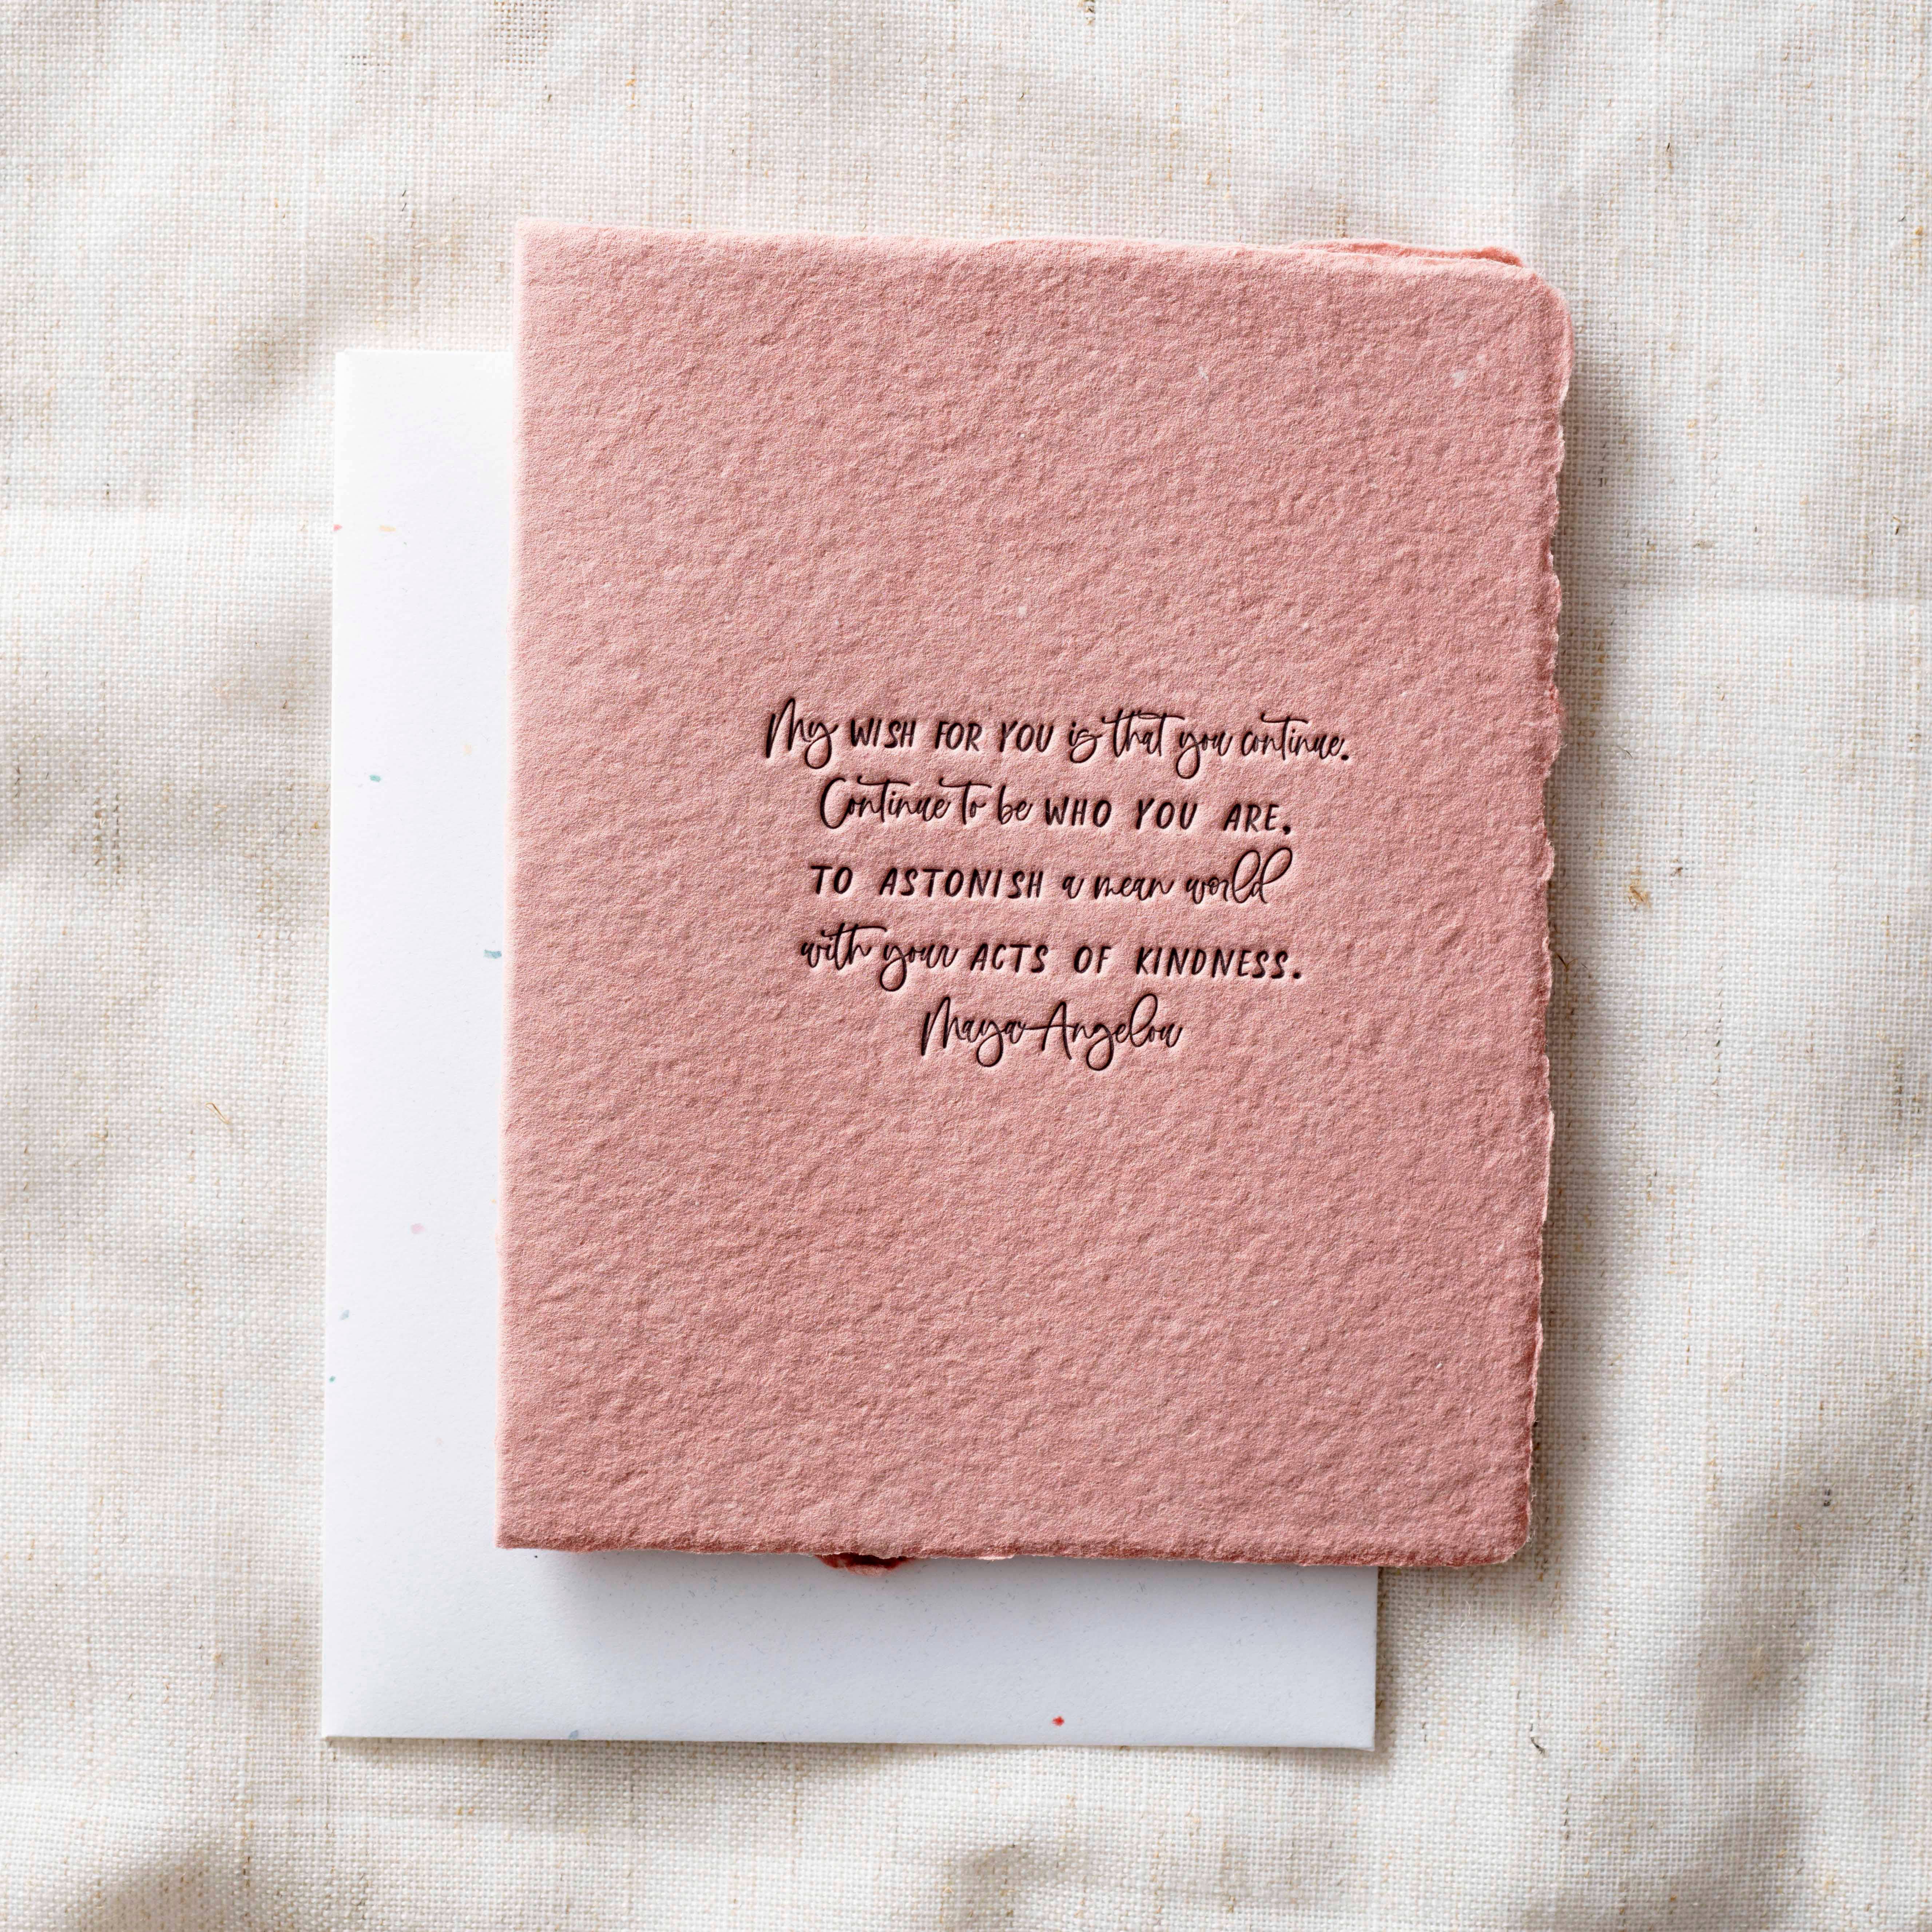 My WISH FOR YOU is that you continue.
Continue to be WHO YOU ARE,
TO ASTONISH a mean world
with your ACTS OF KINDNESS.
Maya Angelou